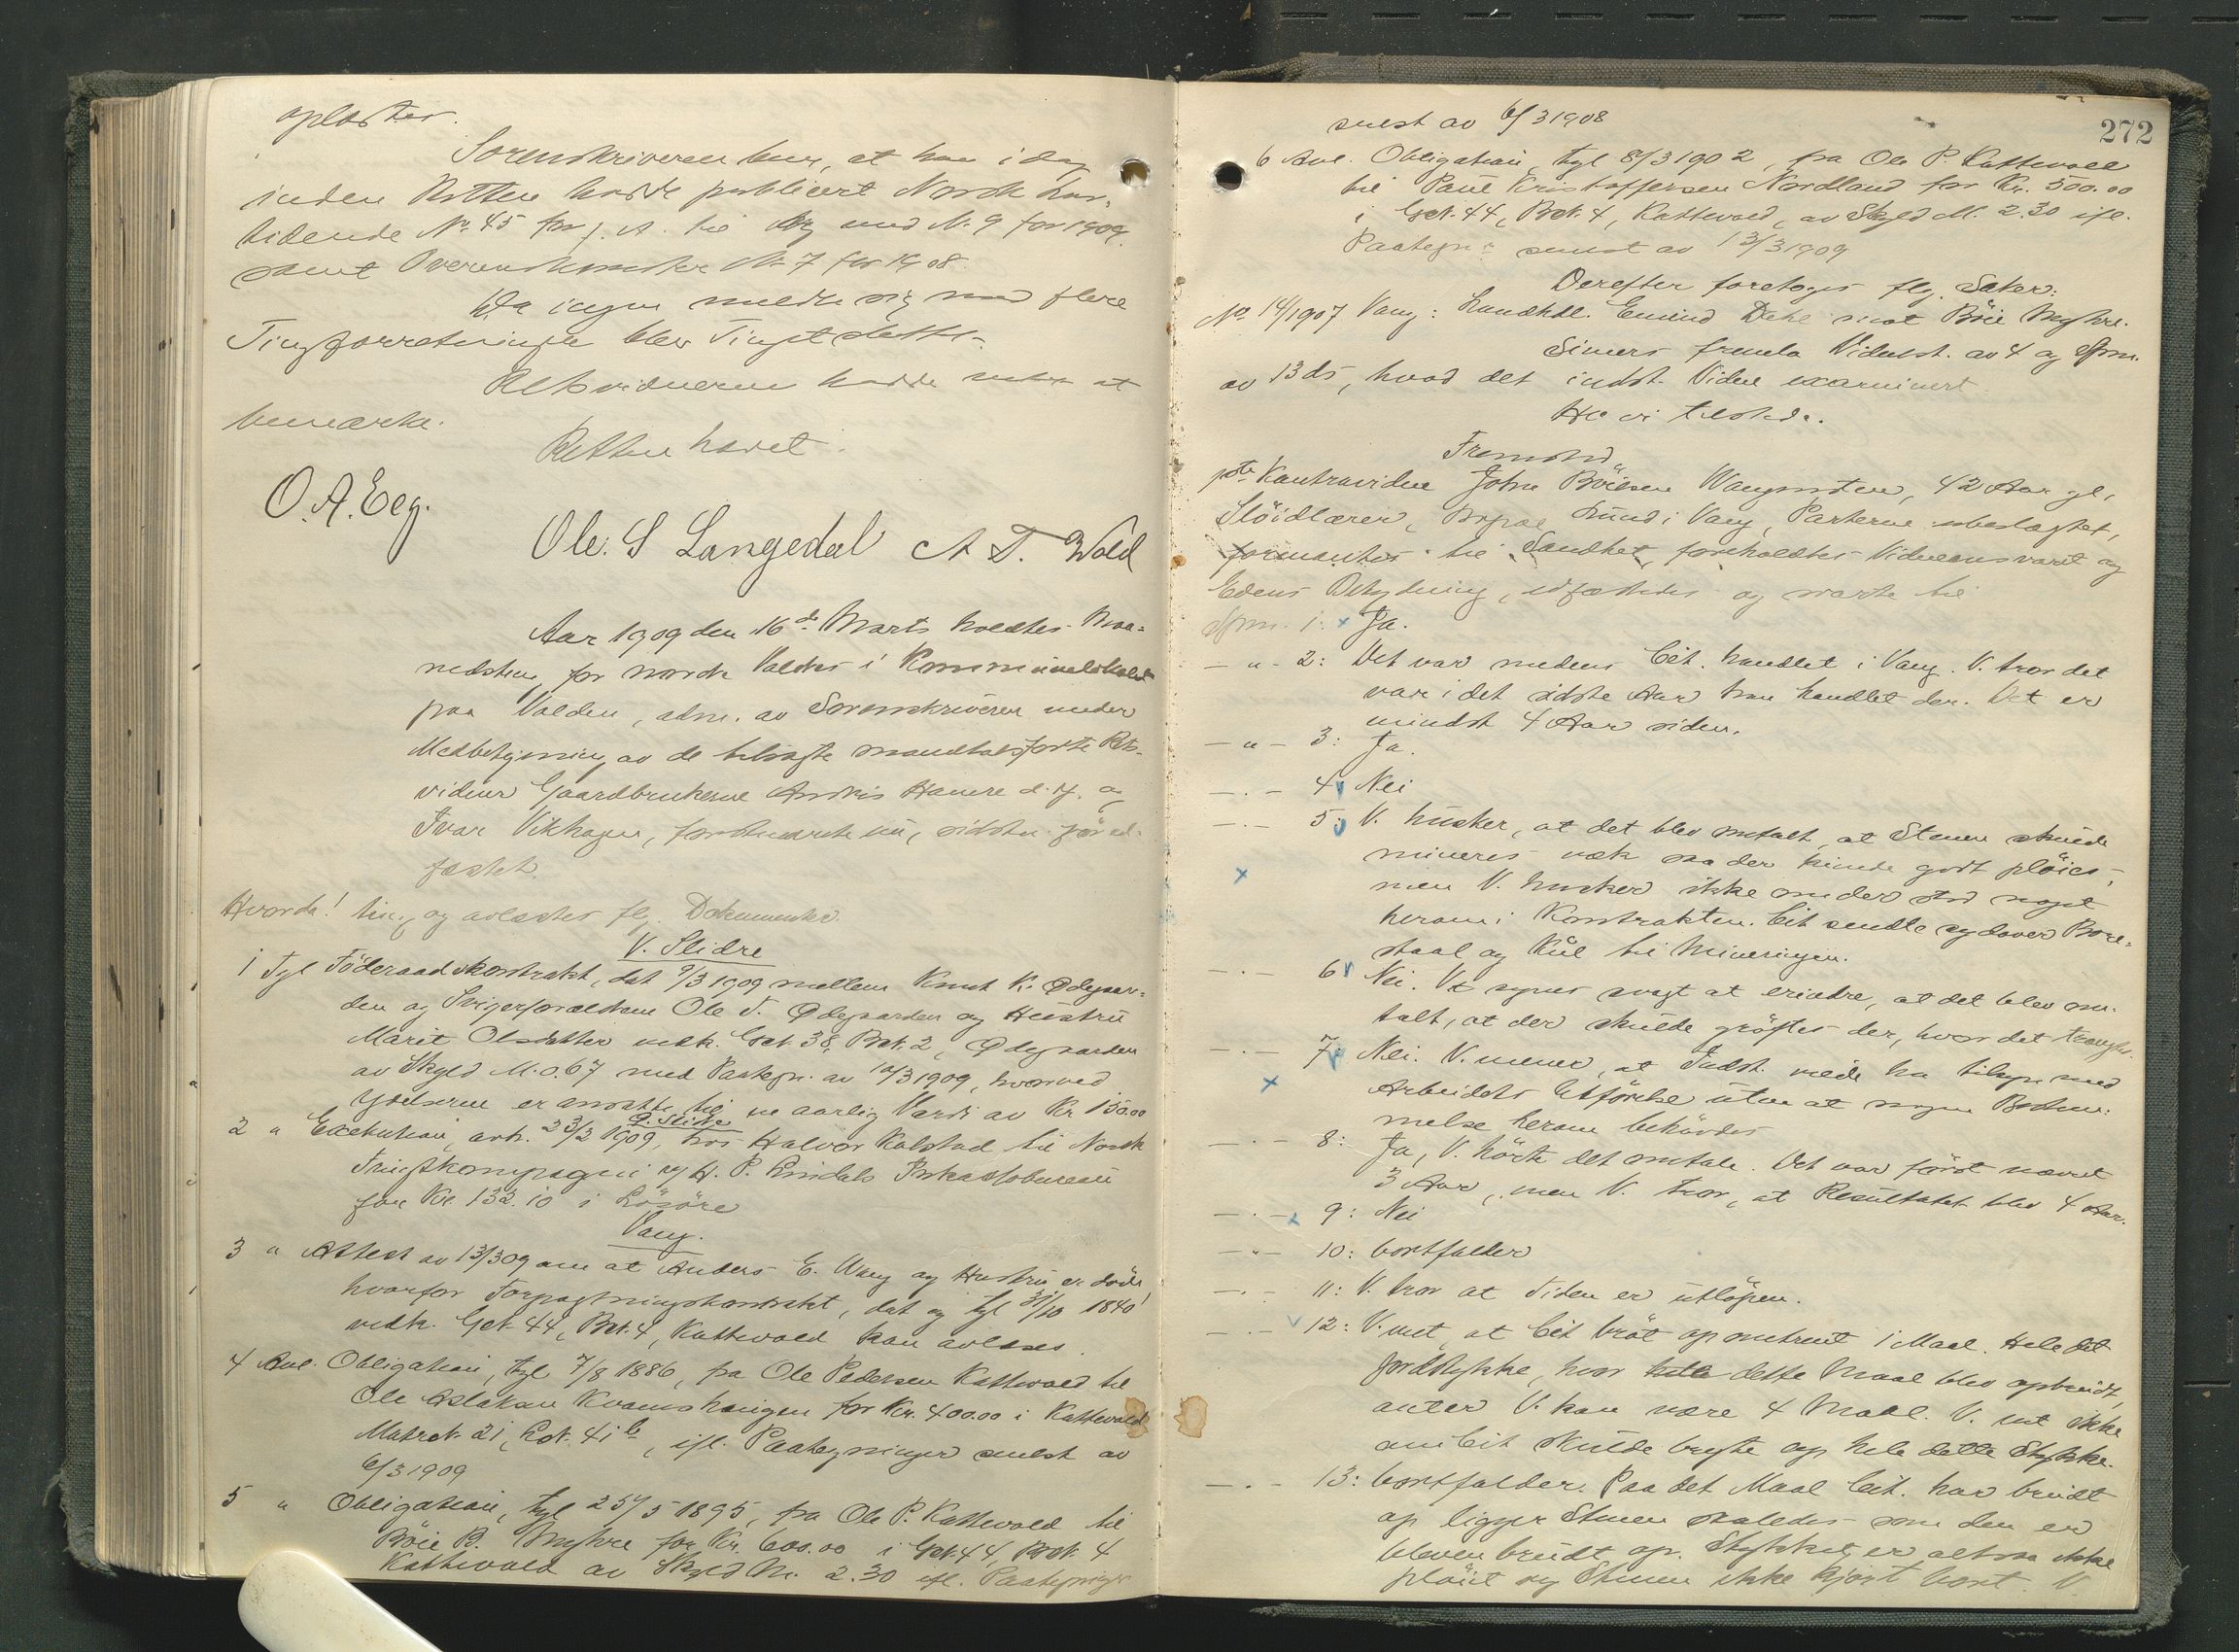 oplæstes.
Sorenskriveren bem, at han i dag
inden Retten hadde publicert Norsk Lov-
tidende No 45 for f. A. til og med N. 9 for 1909
samt Overenskomster No 7 for 1908
Da ingen meldte sig med flere
Tingforretninger blev Tinget sluttet.
Retsvidnerne hadde intet at
bemærke.
Retten hævet.
O. A. Eeg.
Ole. S Langedal A T. Wold
Aar 1909 den 16de Marts holdtes Maa-
nedsting for nordre Valdres i Kommunelokalet
paa Volden, adm. av Sorenskriveren under
Medbetjening av de tilsagte mandtalsførte Rets-
vidner Gaardbrukerne Andris Hamre d. y. og
Ivar Vikhagen, førstnævnte nu, sidstn. før ed-
fæstet.
Hvorda! tingl. og avlæstes flg. Dokumenter.
V. Slidre
1 Tgl Föderaadskontrakt, dat 9/3 1909 mellem Knut K. Ødegaar-
den og Svigerforældrene Ole T. Ødegaarden og Hustru
Marit Olsdatter vedk. Gnr 38, Bnr. 2, Ødegaarden
av Skyld M. 0.67 med Paategn. av 10/3 1909, hvorved
Ydelserne er ansatte til en aarlig Værdi av Kr 150.00
Ø. Slidre
2 " Exekution, avh. 23/2 1909, hos Halvor Kalstad til Norsk
Trustkompagni v/ H. P. Lindals Inkassobureau
for Kr. 132.10 i Lösöre
Vang.
3 " Attest av 13/3 09 om at Anders E. Wang og Hustru er döde
hvorfor Forpagtningskontrakt, dat og tgl 31/10 1840
vedk. Gnr. 44, Bnr. 4, Kattevold kan avlæses.
4 Avl. Obligation, tgl 7/8 1886, fra Ole Pedersen Kattevold til
Ole Aslaksen Kvamshaugen for Kr. 400.00 i Kattevold
Matrnr. 21, Lnr. 41 b, ifl. Paategninger senest av
6/3 1909
5 " Obligation, tgl 25/5 1895, fra Ole P. Kattevold til
Böie B. Myhre for Kr. 600.00 i Gnr. 44, Bnr. 4
Kattevold av Skyld M. 2.30 ifl. Paategninger
272
senest av 6/3 1908
6 Avl. Obligation, tgl 8/3 1902, fra Ole P. Kattevold
til Paul Kristoffersen Nordland for Kr. 500.00
i Gnr. 44, Bnr. 4, Kattevold, av Skyld M. 2.30 ifl.
Paategn. senest av 13/3 1909
Derefter foretoges flg. Saker:
No 14/1907 Vang: Landhdl. Emind Dahl mot Böie Myhre.
Simers fremla Vidnest. av 4 og Spm.
av 13 ds, hvad det indst. Vidne examinert
Ha vi tilstede.
Fremstod
1ste Kontravidne John Böiesen Wangensten, 42 Aar gl.,
Slöidlærer, Bopæl Lund i Vang, Parterne ubeslægtet,
formantes til Sandhet, foreholdtes Vidneansvaret og
Edens Betydning, edfæstedes og svarte til
Spm. 1: Ja.
— " — 2: Det var medens Cit. handlet i Vang. V. tror det
var i det sidste Aar han handlet der. Det er
mindst 4 Aar siden.
— " — 3: Ja.
— . — 4 Nei
— . — 5: V. husker, at det blev omtalt, at Stenen skulde
mineres væk saa der kunde godt plöies,
men V. husker ikke om der stod noget
herom i Kontrakten. Cit sendte ogsaa over Bore-
staal og Kul til Mineringen.
— . — 6 Nei. V. synes svagt at erindre, at det blev om-
talt, at der skulde gröftes der, hvor det trængtes.
— . — 7: Nei. V. mener, at Indst. maatte ha tilsyn med
Arbeidets Utförelse uten at nogen Bestem-
melse herom behövdes
— . — 8: Ja, V. hörte det omtale. Det var først nævnt
3 Aar, men V. tror, at Resultatet blev 4 Aar.
— . — 9: Nei
— . — 10: bortfalder
— . — 11: V. tror at Tiden er utlöpen.
— . — 12: V. vet, at Cit bröt op omtrent 1 Maal. Hele det
Jordstykke, hvor dette Maal blev opbrudt,
antar V. kan være 4 Maal. V. vet ikke
om Cit skulde bryte op hele dette Stykke.
— . — 13: bortfalder. Paa det Maal Cit. har brudt
op ligger Stenen saaledes som den er
bleven brudt op. Stykket er altsaa ikke
plöiet og Stenen ikke kjört bort. V.